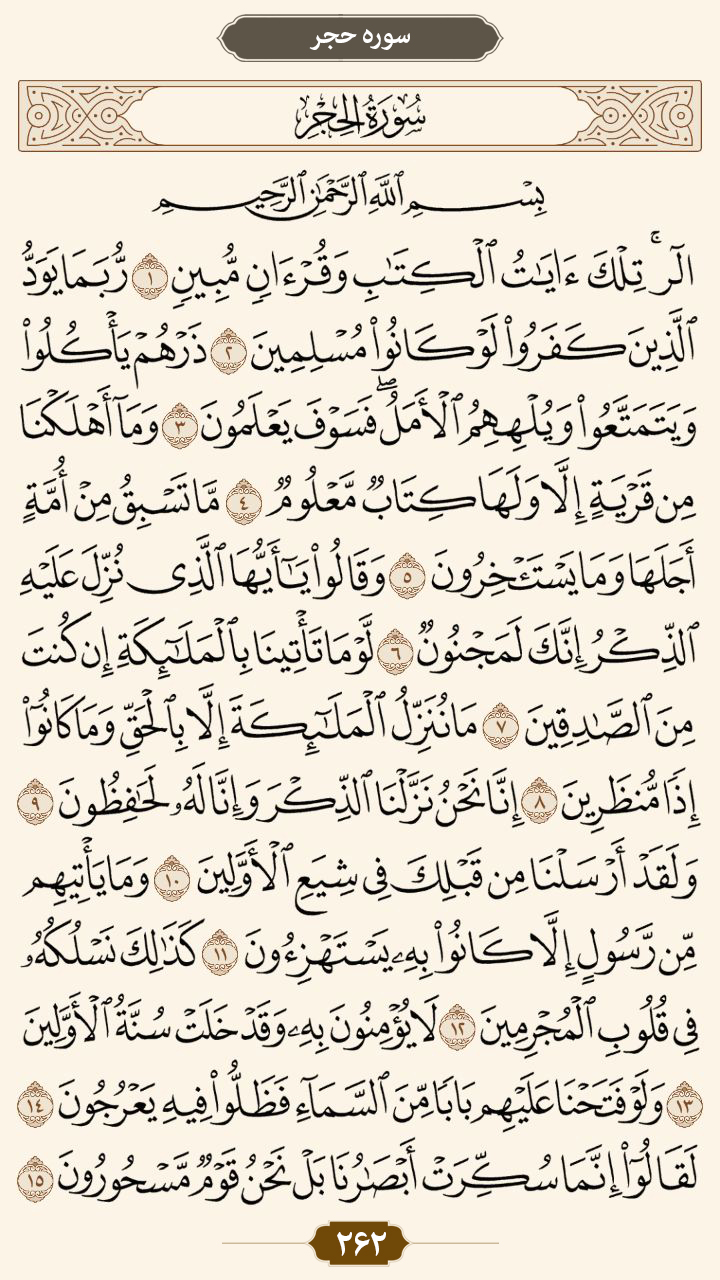 سوره حجر
سُورَةُ الْحِجْرِ
بِسْمِ ٱللَّهِ ٱلرَّحْمَٰنِ ٱلرَّحِيمِ
الٓرۚ تِلْكَ ءَايَٰتُ ٱلْكِتَٰبِ وَقُرْءَانٍ مُّبِينٍ ١ رُّبَمَا يَوَدُّ
ٱلَّذِينَ كَفَرُوا۟ لَوْ كَانُوا۟ مُسْلِمِينَ ٢ ذَرْهُمْ يَأْكُلُوا۟
وَيَتَمَتَّعُوا۟ وَيُلْهِهِمُ ٱلْأَمَلُۖ فَسَوْفَ يَعْلَمُونَ ٣ وَمَآ أَهْلَكْنَا
مِن قَرْيَةٍ إِلَّا وَلَهَا كِتَابٌ مَّعْلُومٌ ٤ مَّا تَسْبِقُ مِنْ أُمَّةٍ
أَجَلَهَا وَمَا يَسْتَـْٔخِرُونَ ٥ وَقَالُوا۟ يَٰٓأَيُّهَا ٱلَّذِى نُزِّلَ عَلَيْهِ
ٱلذِّكْرُ إِنَّكَ لَمَجْنُونٌ ٦ لَّوْ مَا تَأْتِينَا بِٱلْمَلَٰٓئِكَةِ إِن كُنتَ
مِنَ ٱلصَّٰدِقِينَ ٧ مَا نُنَزِّلُ ٱلْمَلَٰٓئِكَةَ إِلَّا بِٱلْحَقِّ وَمَا كَانُوٓا۟
إِذًا مُّنظَرِينَ ٨ إِنَّا نَحْنُ نَزَّلْنَا ٱلذِّكْرَ وَإِنَّا لَهُۥ لَحَٰفِظُونَ ٩
وَلَقَدْ أَرْسَلْنَا مِن قَبْلِكَ فِى شِيَعِ ٱلْأَوَّلِينَ ١٠ وَمَا يَأْتِيهِم
مِّن رَّسُولٍ إِلَّا كَانُوا۟ بِهِۦ يَسْتَهْزِءُونَ ١١ كَذَٰلِكَ نَسْلُكُهُۥ
فِى قُلُوبِ ٱلْمُجْرِمِينَ ١٢ لَا يُؤْمِنُونَ بِهِۦ وَقَدْ خَلَتْ سُنَّةُ ٱلْأَوَّلِينَ
١٣ وَلَوْ فَتَحْنَا عَلَيْهِم بَابًا مِّنَ ٱلسَّمَآءِ فَظَلُّوا۟ فِيهِ يَعْرُجُونَ ١٤
لَقَالُوٓا۟ إِنَّمَا سُكِّرَتْ أَبْصَٰرُنَا بَلْ نَحْنُ قَوْمٌ مَّسْحُورُونَ ١٥
۲۶۲